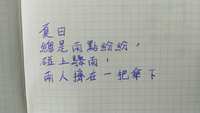 夏日
總是雨點紛紛，
碰上驟雨，
兩人擠在一把傘下